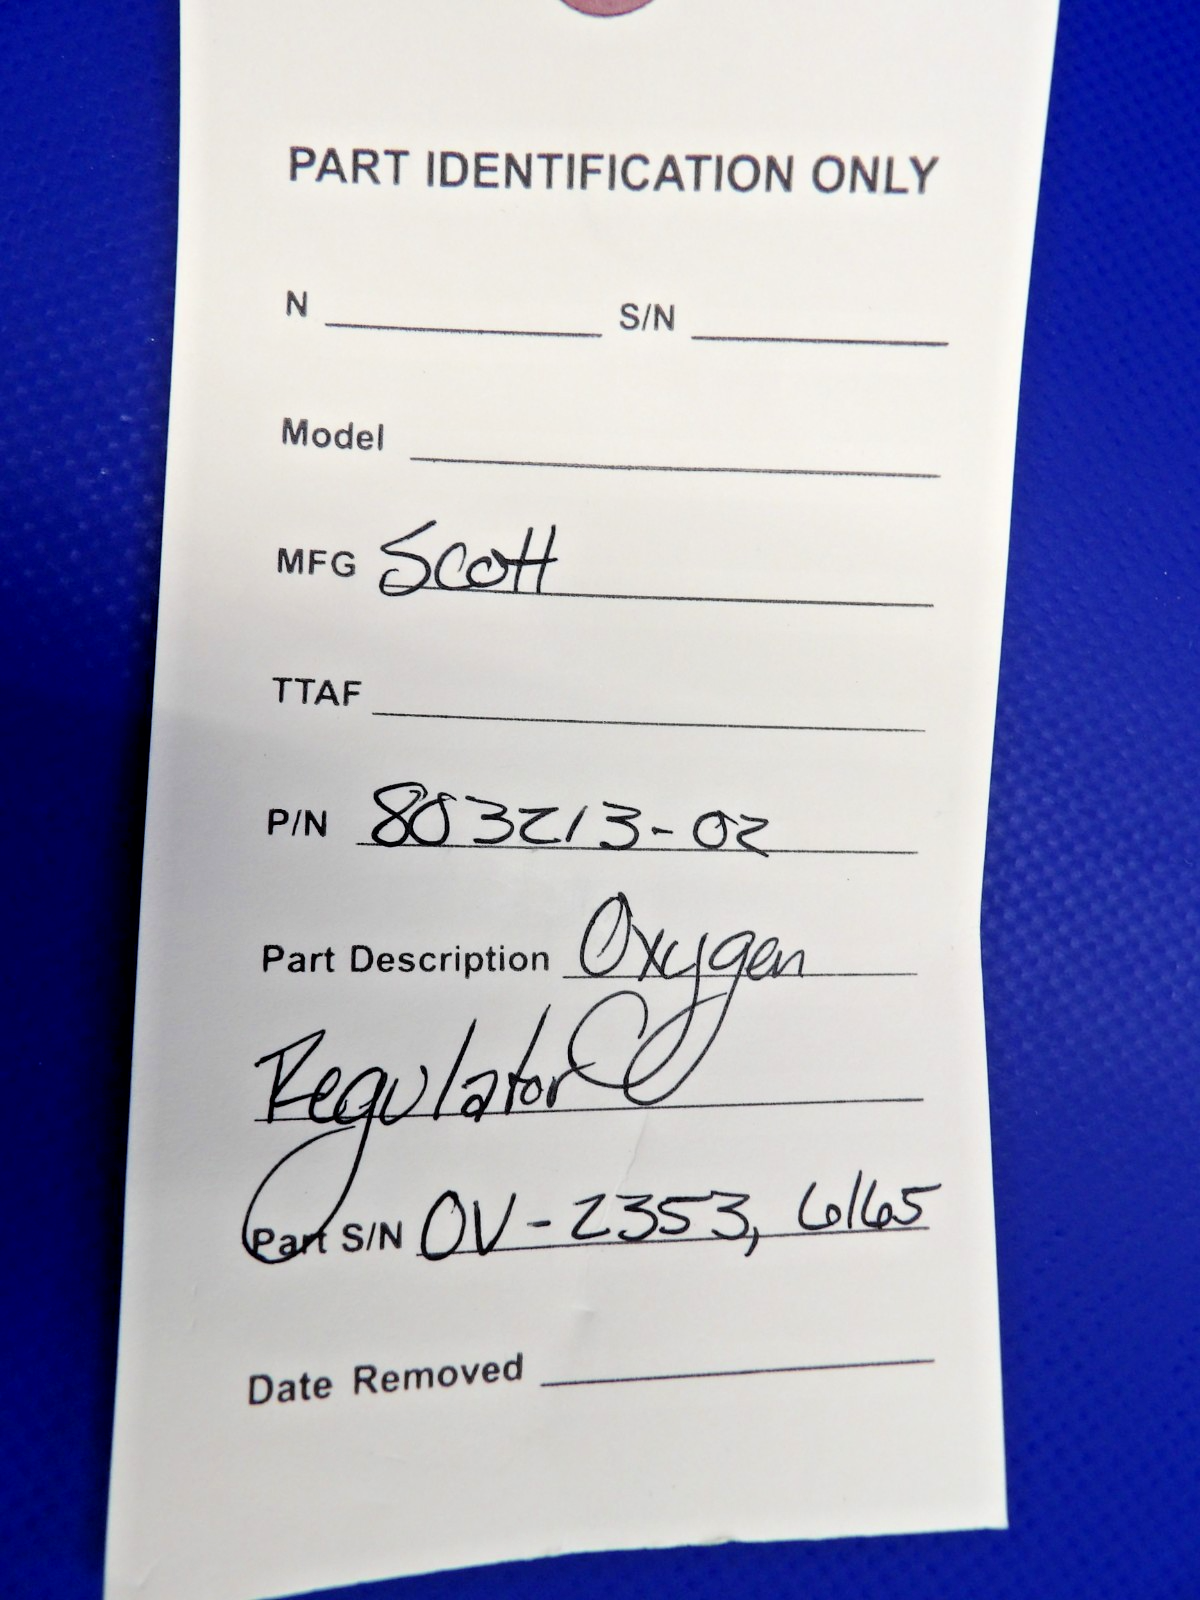 PART IDENTIFICATION ONLY
N S/N
Model
MFG Scott
TTAF
P/N 803213-02
Part Description Oxygen
Regulator
Part S/N OV-2353, 6165
Date Removed